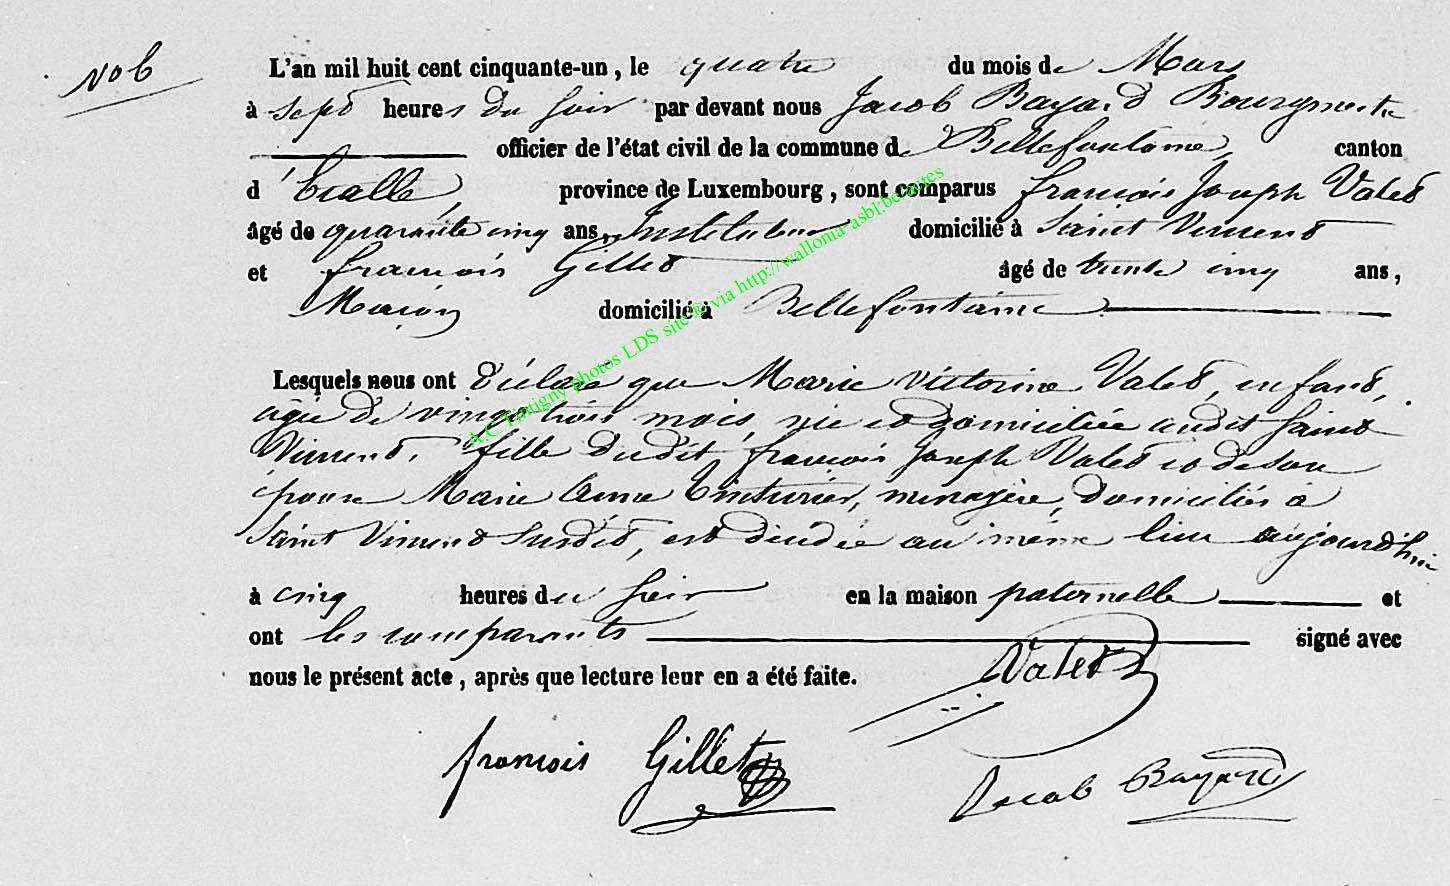 No 6
L'an mil huit cent cinquante-un, le quatre du mois de Mars
à sept heures du soir par devant nous Jacob Bayard Bourgmestre
officier de l'état civil de la commune de Bellefontaine, canton
d'Etalle, province de Luxembourg, sont comparus françois Joseph Valet
âgé de quarante cinq ans, Instituteur domicilié à Saint Vincent
et françois Gillet âgé de trente cinq ans,
Maçon domicilié à Bellefontaine
Lesquels nous ont déclaré que Marie Victorine Valet, enfant,
agée de vingt trois mois, née et domiciliée audit Saint
Vincent, fille dudit françois Joseph Valet et de son
épouse Marie Anne Tinturier, menagère, domiciliés à
Saint Vincent susdit, est décédée au même lieu aujourd'hui
à cinq heures du soir en la maison paternelle et
ont les comparants signé avec
nous le présent acte, après que lecture leur en a été faite.
Valet
françois Gillet
Jacob Bayard
A.C Tintigny photos LDS site @ via http://wallonia-asbl.be/actes